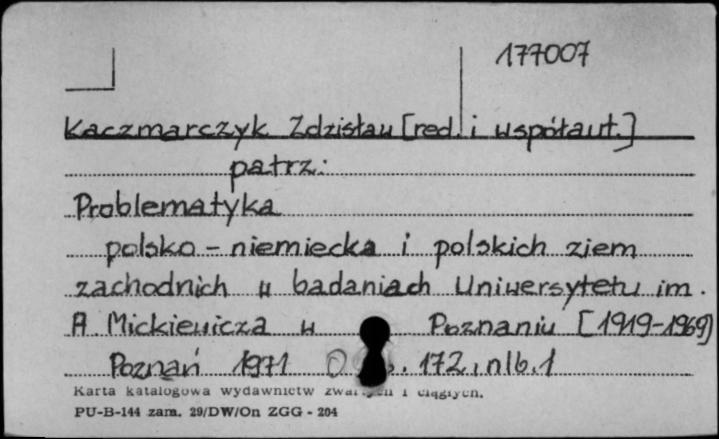 177007
Kaczmarczyk Zdzisław [red. i współaut.]
patrz:
Problematyka
polsko - niemiecka i polskich ziem
zachodnich w badaniach Uniwersytetu im.
A. Mickiewicza w Poznaniu [1919-1969]
Poznań 1971 172, nlb. 1
Karta katalogowa wydawnictw i ciągłych.
PU-B-144 zam. 29/DW/On ZGG - 204